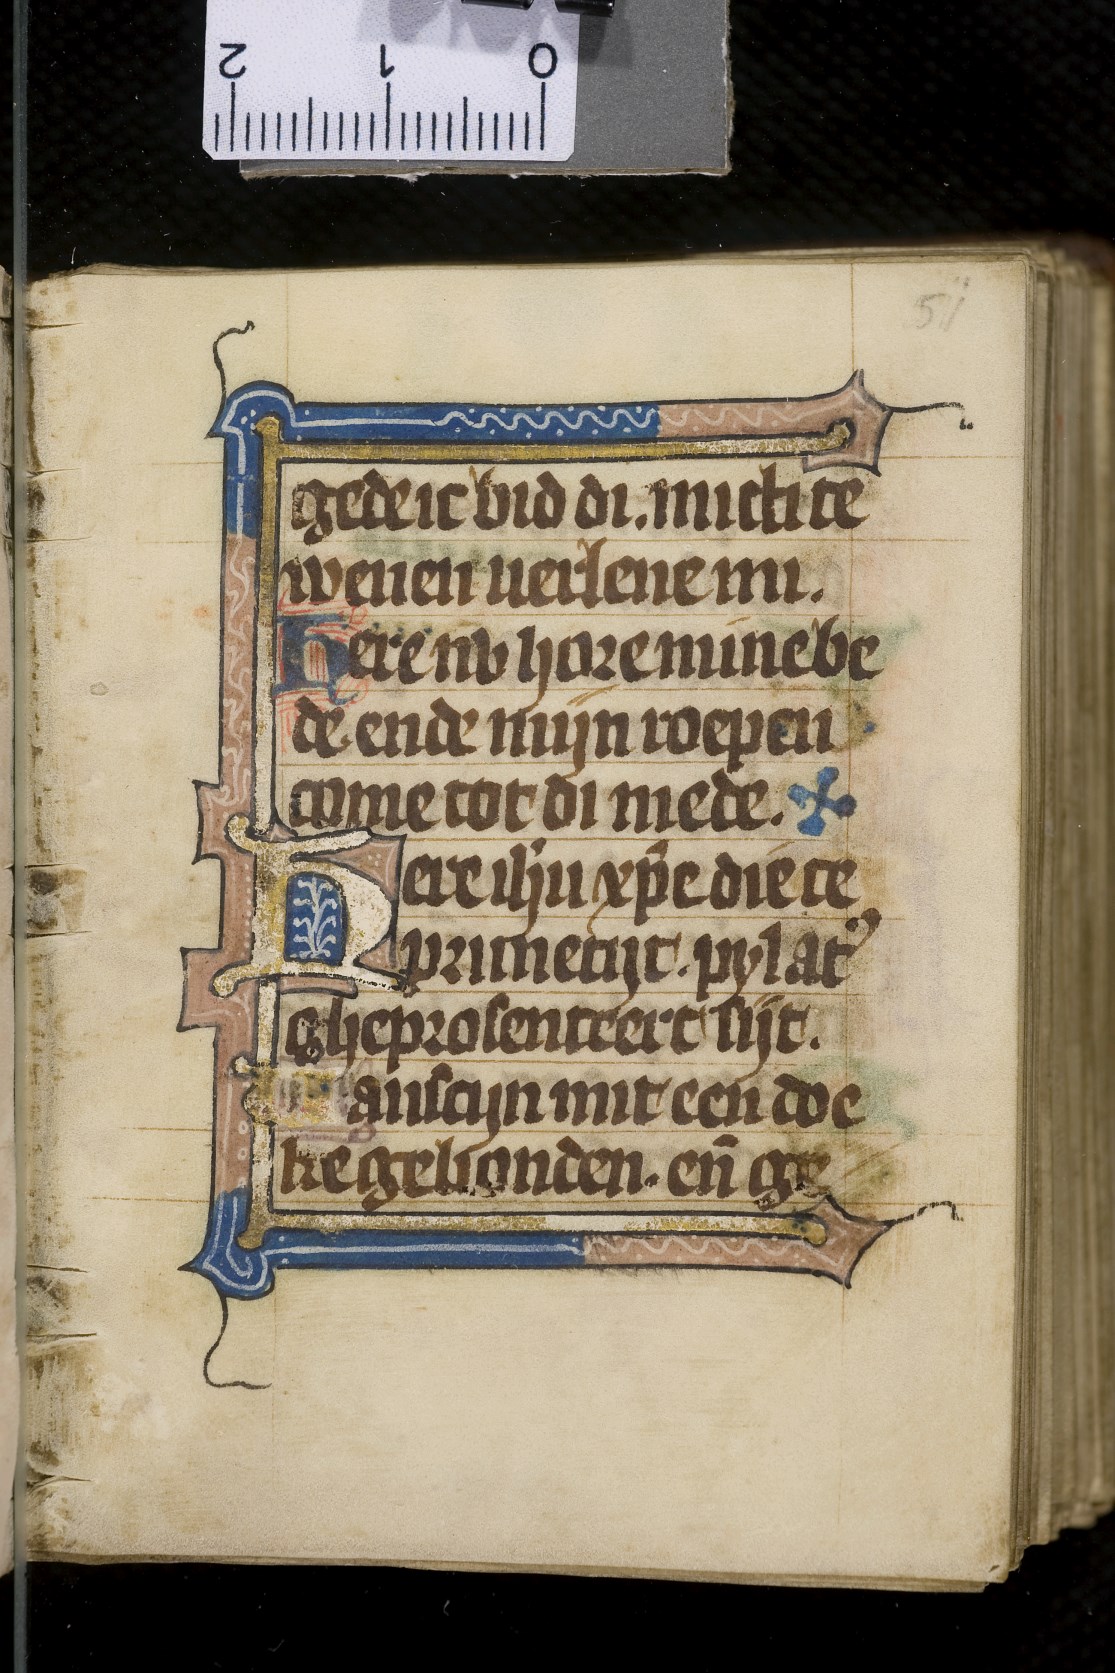 2 1 0
gedeic bid di. mich te
weuen uerlene mi.
Here nv hore mine be
de ende mijn roepen
come tot di mede.
Here ihu xpe die te
primetijt. pylat᾽
gheprosenteert sijt.
anscijn mit een doe
ke gebonden. en̄ ge